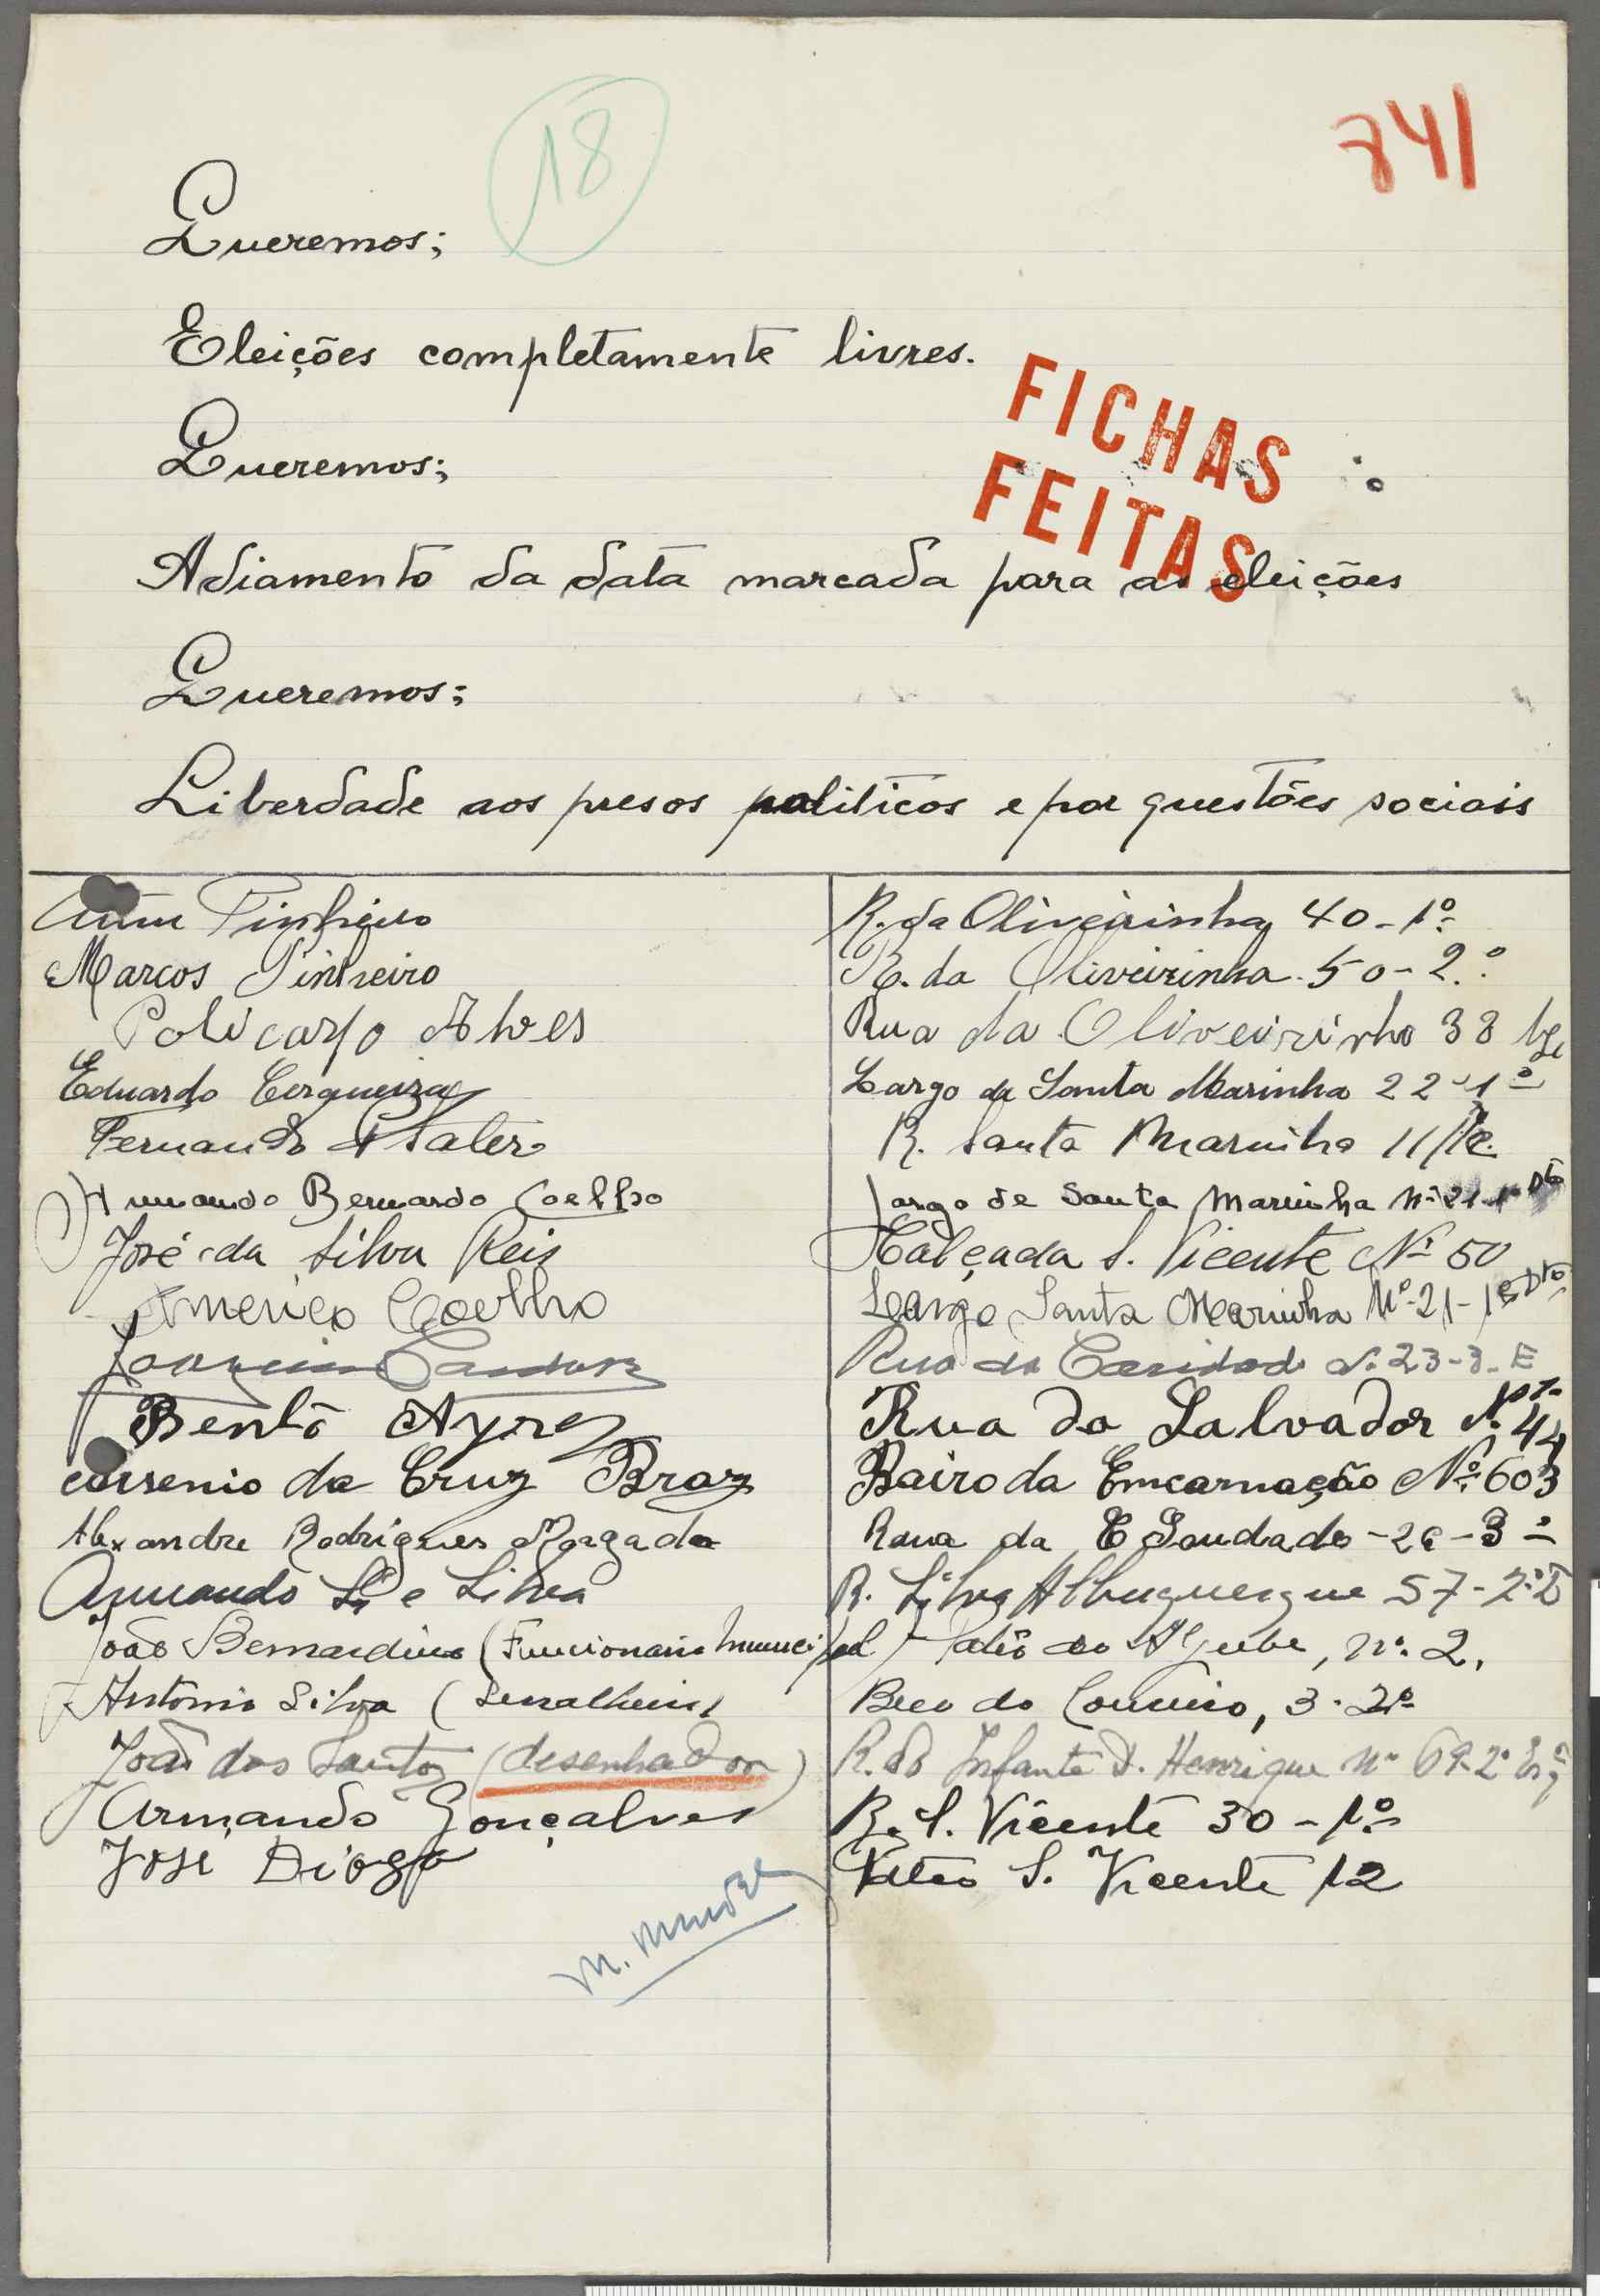 18
741
Queremos;
Eleições completamente livres.
FICHAS
FEITAS
Queremos;
Adiamento da data marcada para as eleições
Queremos;
Liberdade aos presos politicos e por questões sociais
Pinheiro R. da Oliveirinha 40-1º
Marcos Pinheiro R. da Oliveirinha 50-2.º
Policarpo Alves Rua da Oliveirinha 38
Eduardo Cerqueira Largo de Santa Marinha 22-1º
Fernando R. Santa Marinha 11
Armando Bernardo Coelho Largo de Santa Marinha Nº 21-1º Dto
José da Silva Reis Calçada S. Vicente Nº 50
Americo Coelho Largo Santa Marinha Nº-21-1º Dto
Joaquim Rua da Caridade 23-3-E
Bento Ayres Rua do Salvador Nº 44
Arsenio da Cruz Braz Bairo da Emcarnação Nº 603
Alexandre Rodrigues Morgado da E Saudade-26-3º
Armando e Silva R. Silva Albuquerque 57-2º
João Bernardino (Funcionario Municipal) Patio do Aljube, nº 2,
Antonio Silva (Serralheiro) Beco do 3-2º
João dos Santos (desenhador) R. do Infante D. Henrique nº 69-2º Esq
Armando Gonçalves R. S. Vicente 30-1º
José Diogo Páteo S. Vicente 12
M. Mendes